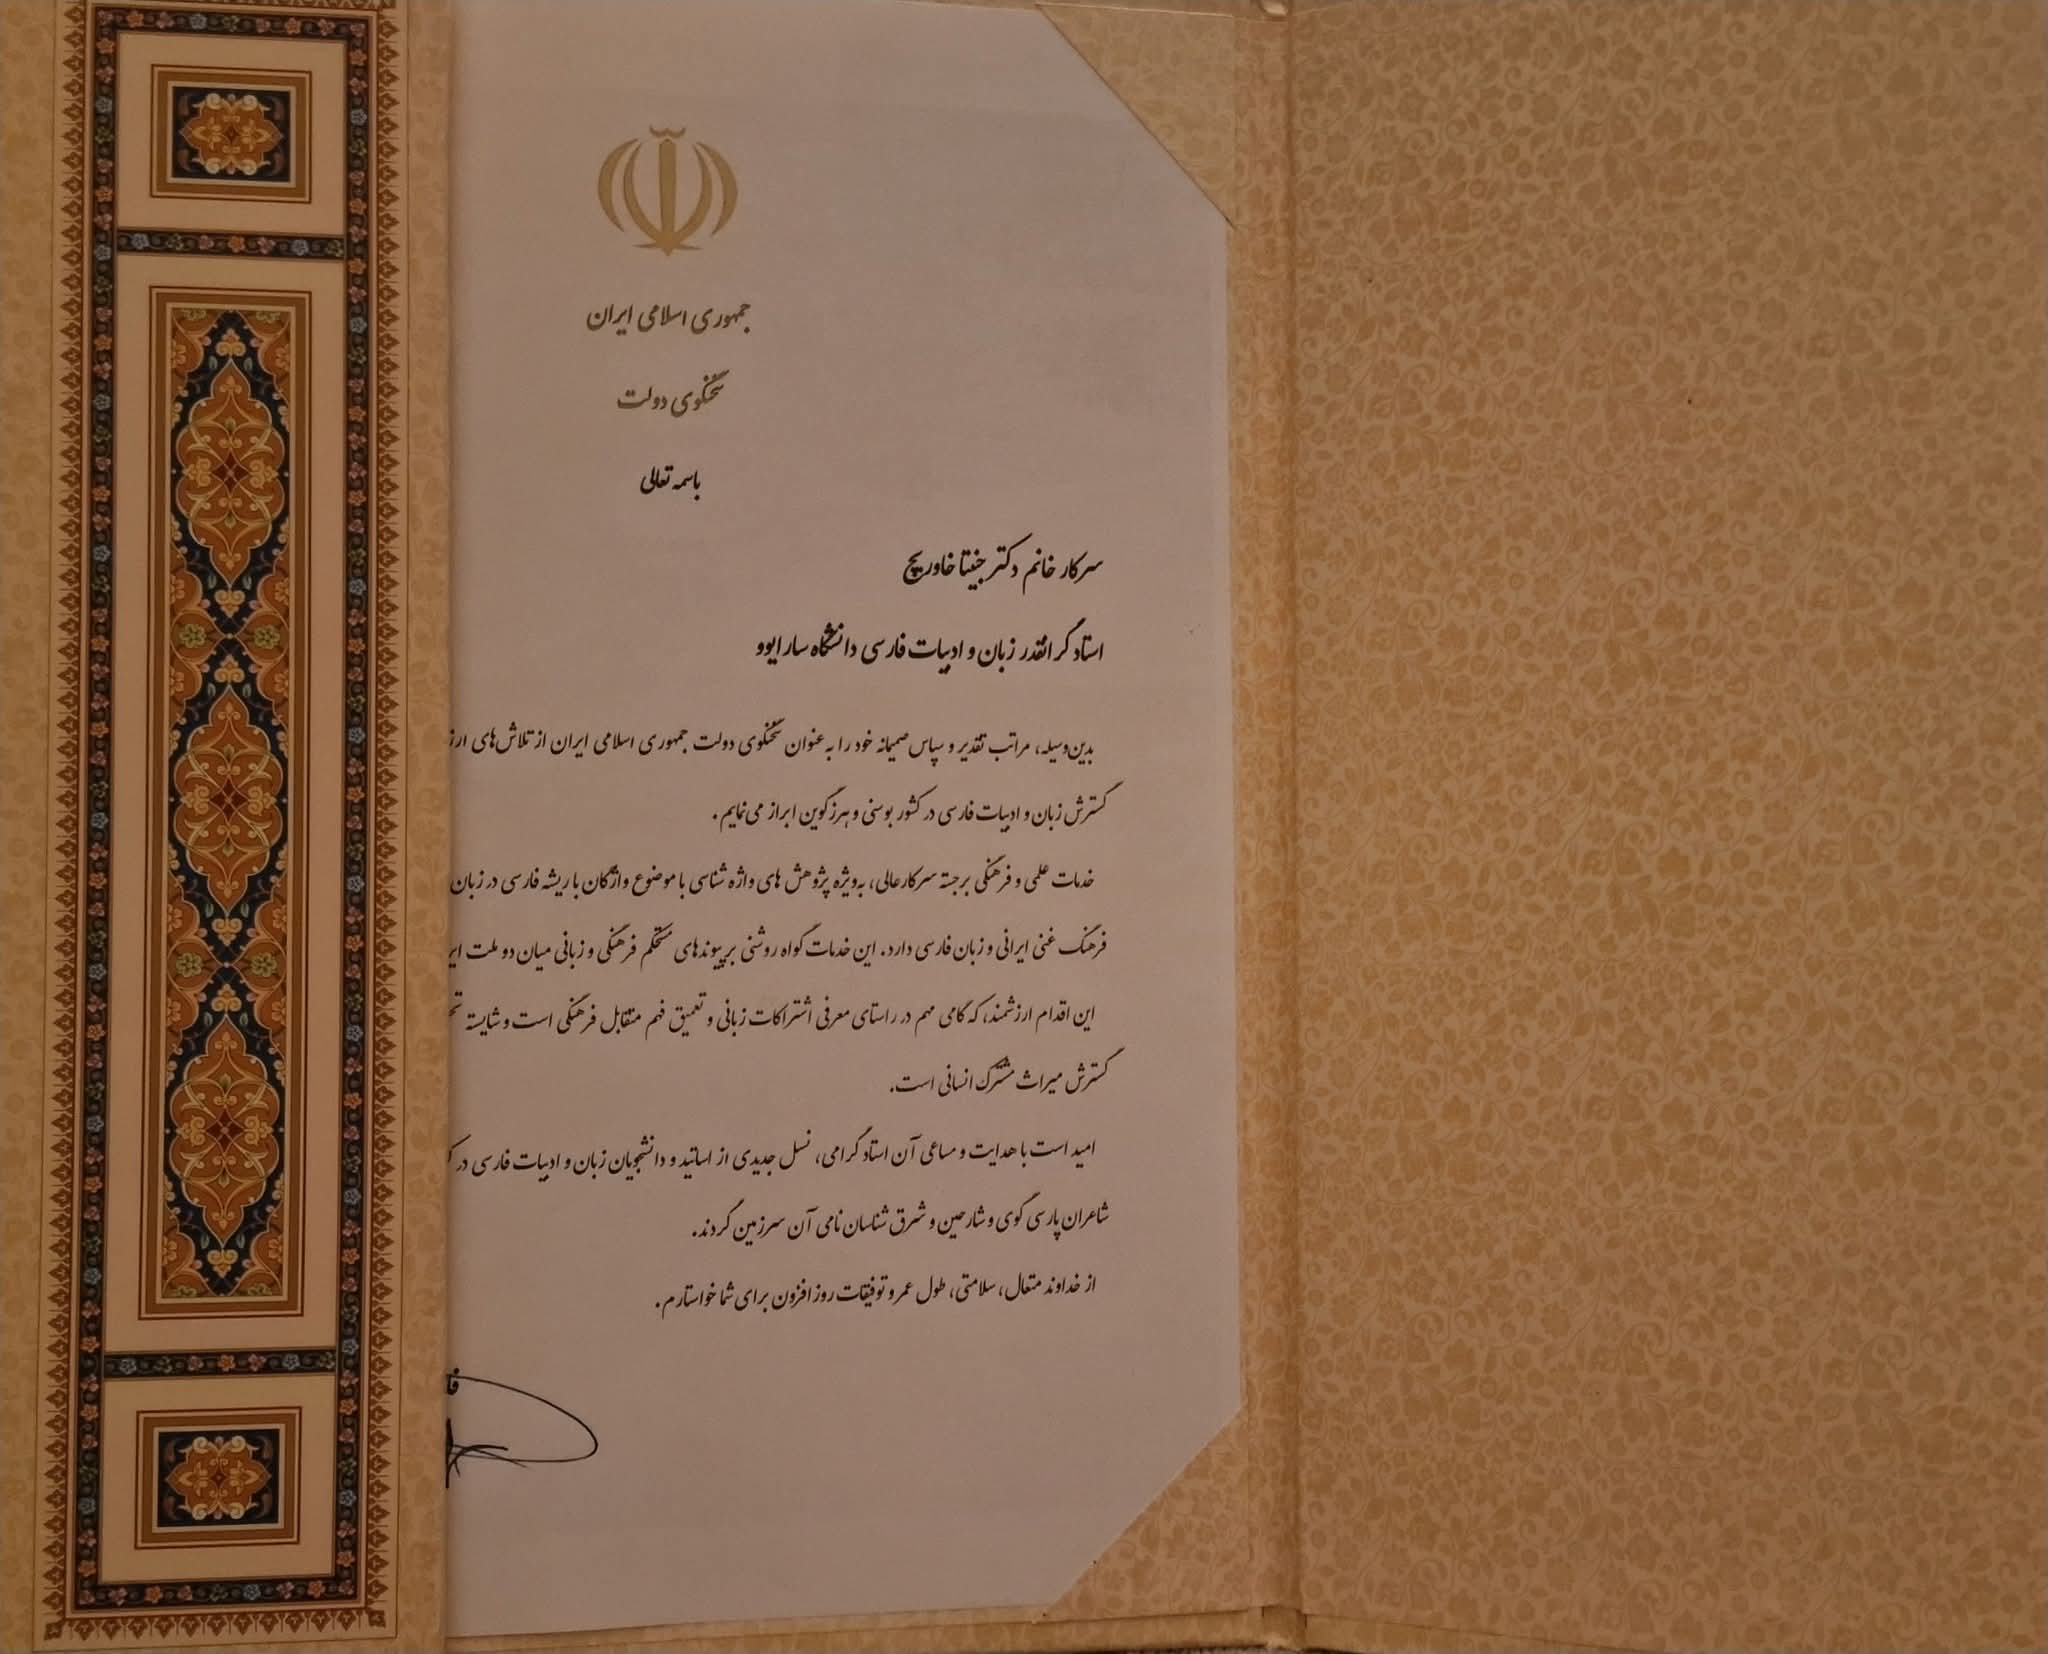 جمهوری اسلامی ایران
سخنگوی دولت
باسمه تعالی
سرکار خانم دکتر جنیتا خاوریچ
استاد گرانقدر زبان و ادبیات فارسی دانشگاه سارایوو
بدین‌وسیله، مراتب تقدیر و سپاس صمیمانه خود را به عنوان سخنگوی دولت جمهوری اسلامی ایران از تلاش‌های
گسترش زبان و ادبیات فارسی در کشور بوسنی و هرزگوین ابراز می‌نمایم.
خدمات علمی و فرهنگی برجسته سرکارعالی، به‌ویژه پژوهش های واژه شناسی با موضوع واژگان با ریشه فارسی در زبان
فرهنگ غنی ایرانی و زبان فارسی دارد. این خدمات گواه روشنی بر پیوندهای مستحکم فرهنگی و زبانی میان دو ملت
این اقدام ارزشمند، که گامی مهم در راستای معرفی اشتراکات زبانی و تعمیق فهم متقابل فرهنگی است و شایسته
گسترش میراث مشترک انسانی است.
امید است با هدایت و مساعی آن استاد گرامی، نسل جدیدی از اساتید و دانشجویان زبان و ادبیات فارسی در
شاعران پارسی گوی و شارحین و شرق شناسان نامی آن سرزمین گردند.
از خداوند متعال، سلامتی، طول عمر و توفیقات روز افزون برای شما خواستارم.